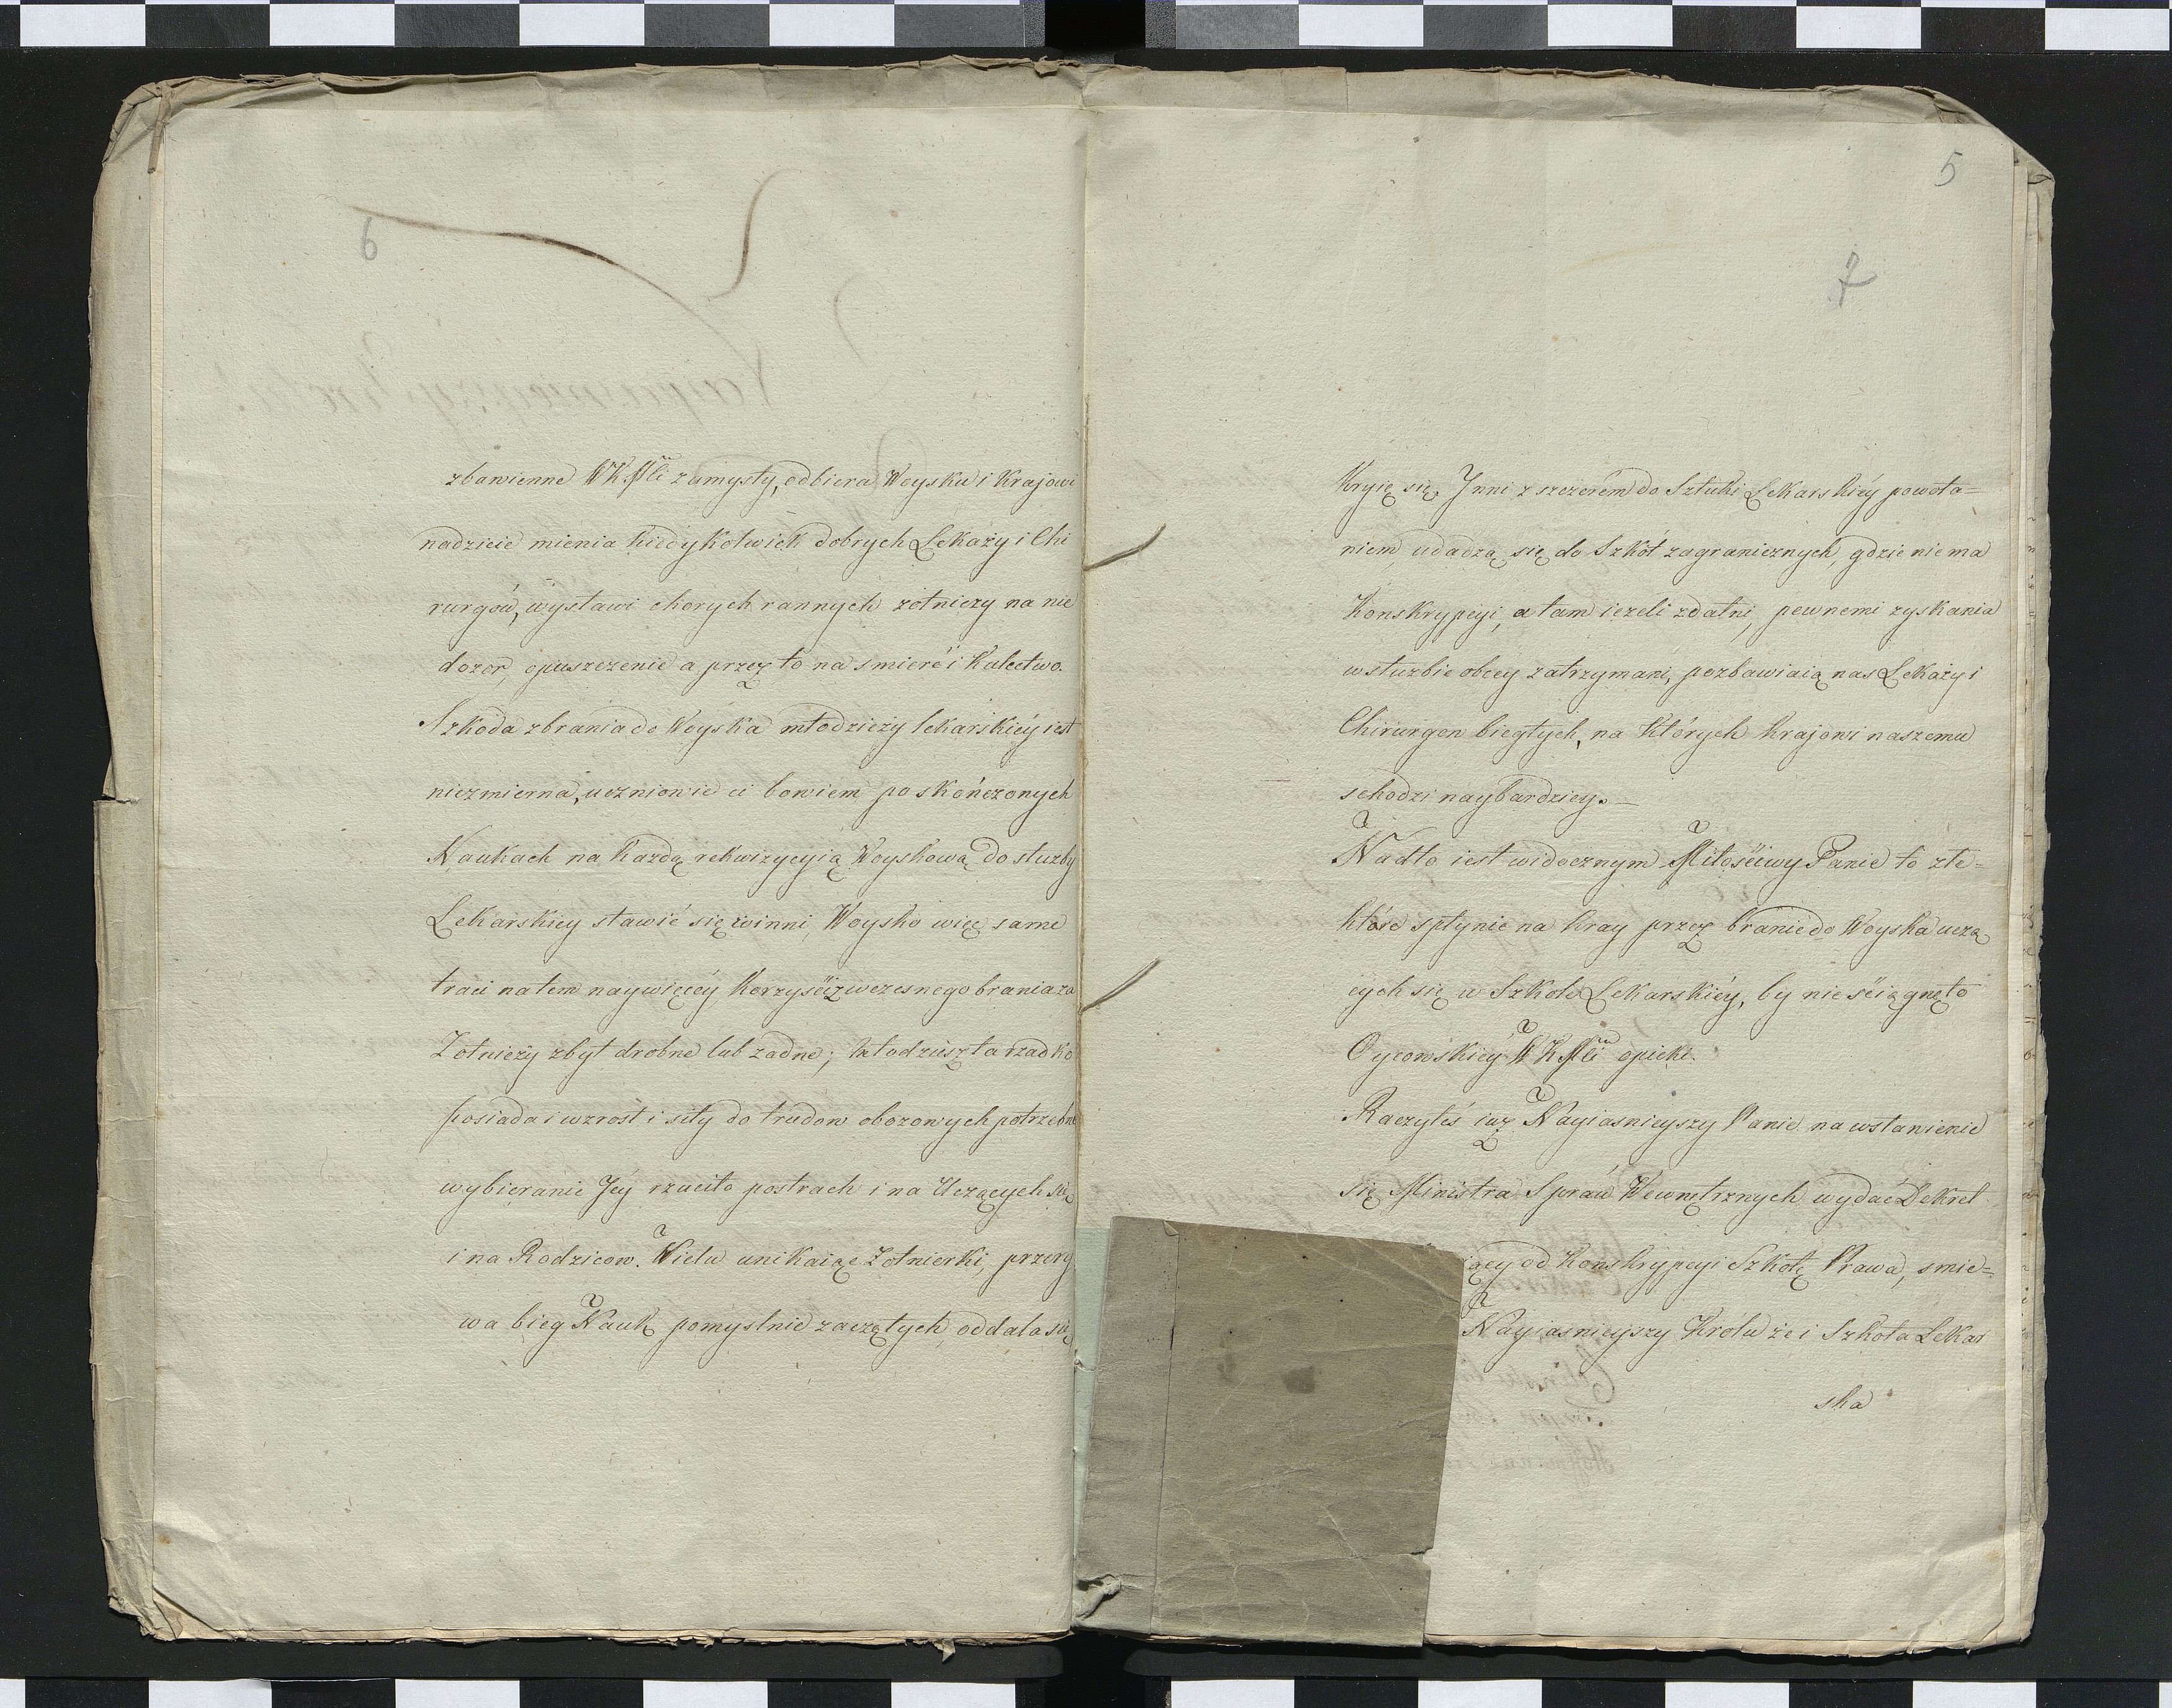 6
zbawienne WKMci zamysły, odbiera Woysku i Krajowi
nadzieie mienia kiedykolwiek dobrych Lekaży i Chi
rurgów, wystawi chorych rannych żołnieży na nie
dozor, opuszczenie a przez to na smierć i Kalectwo.
Szkoda zbrania do Woyska młodzieży lekarskiéy iest
niezmierna, uczniowie ci bowiem po skończonych
Naukach na każdą rekwizycyią Woyskową do służby
Lekarskiey stawić się winni, Woysko więc same
traci natem naywięcéy korzyści z wczesnego brania za
Żołnieży zbyt drobne lub żadne; młodzież ta rzadko
posiada i wzrost i siły do trudow obozowych potrzebne
wybieranie Jéy rzuciło postrach i na Uczących się
i na Rodzicow. Wielu unikaiąc Żołnierki, przery
wa bieg Nauk pomyslnie zaczętych, oddala się
5
7
Kryie się, Inni z szczerem do Sztuki Lekarskiéy powoła=
niem, udadzą się do Szkół zagranicznych, gdzie nie ma
Konskrypcyi, a tam ieżeli zdatni, pewnemi zyskania
w służbie obcey zatrzymani, pozbawiaią nas Lekaży i
Chirurgow biegłych, na których Krajowi naszemu
schodzi naybardziey.
Nadto iest widocznym Miłościwy Panie to złe=
które spłynie na Kray przez branie do Woyska uczą
cych się w Szkole Lekarskiéy, by nie ściągnęło
Oycowskiéy WKMci opieki.
Raczyłeś iuż Nayiasnieyszy Panie na wstawienie
się Ministra Spraw Wewnętrznych wydać Dekret
iący od Konskrypcyi Szkołę Prawa, smie=
Nayiasnieyszy Królu że i Szkoła Lekar
ska